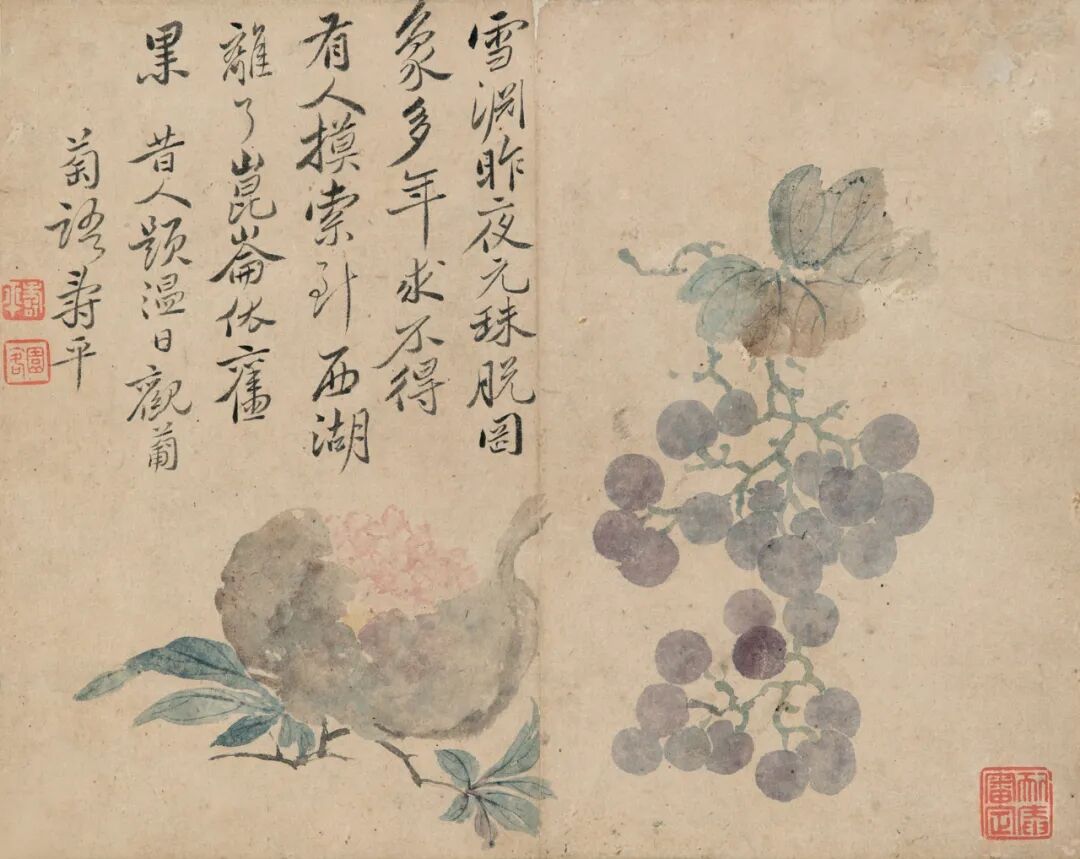 雪渊昨夜元珠脱罔
象多年求不得
有人摸索到西湖
離了崑崙依舊
果 昔人題温日觀葡
萄語壽平
壽平
園客